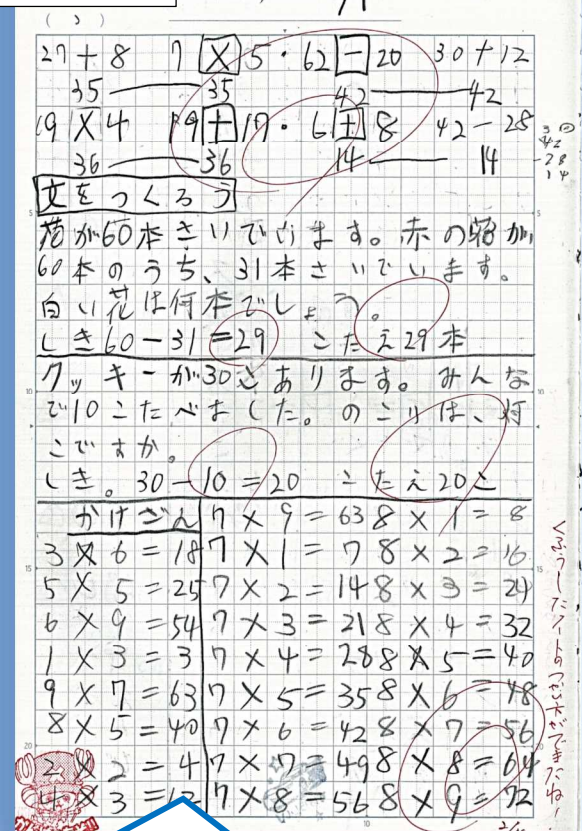 27+8 7×5・62−20 30+12
35 35 42 42
9×4 19+17・6+8 42−28
36 36 14 14
42
-28
14
文をつくろう
花が60本さいでいます。赤の花が、
60本のうち、31本さいでいます。
白い花は何本でしょう。
しき60−31=29 こたえ29本
クッキーが30こあります。みんな
で10こたべました。のこりは、何
こですか。
しき。30−10=20 こたえ20こ
かけざん
3×6=18
5×5=25
6×9=54
1×3=3
9×7=63
8×5=40
2×2=4
4×3=12
7×9=63
7×1=7
7×2=14
7×3=21
7×4=28
7×5=35
7×6=42
7×7=49
7×8=56
8×1=8
8×2=16
8×3=24
8×4=32
8×5=40
8×6=48
8×7=56
8×8=64
8×9=72
くふうしたノートのつかい方ができたね!